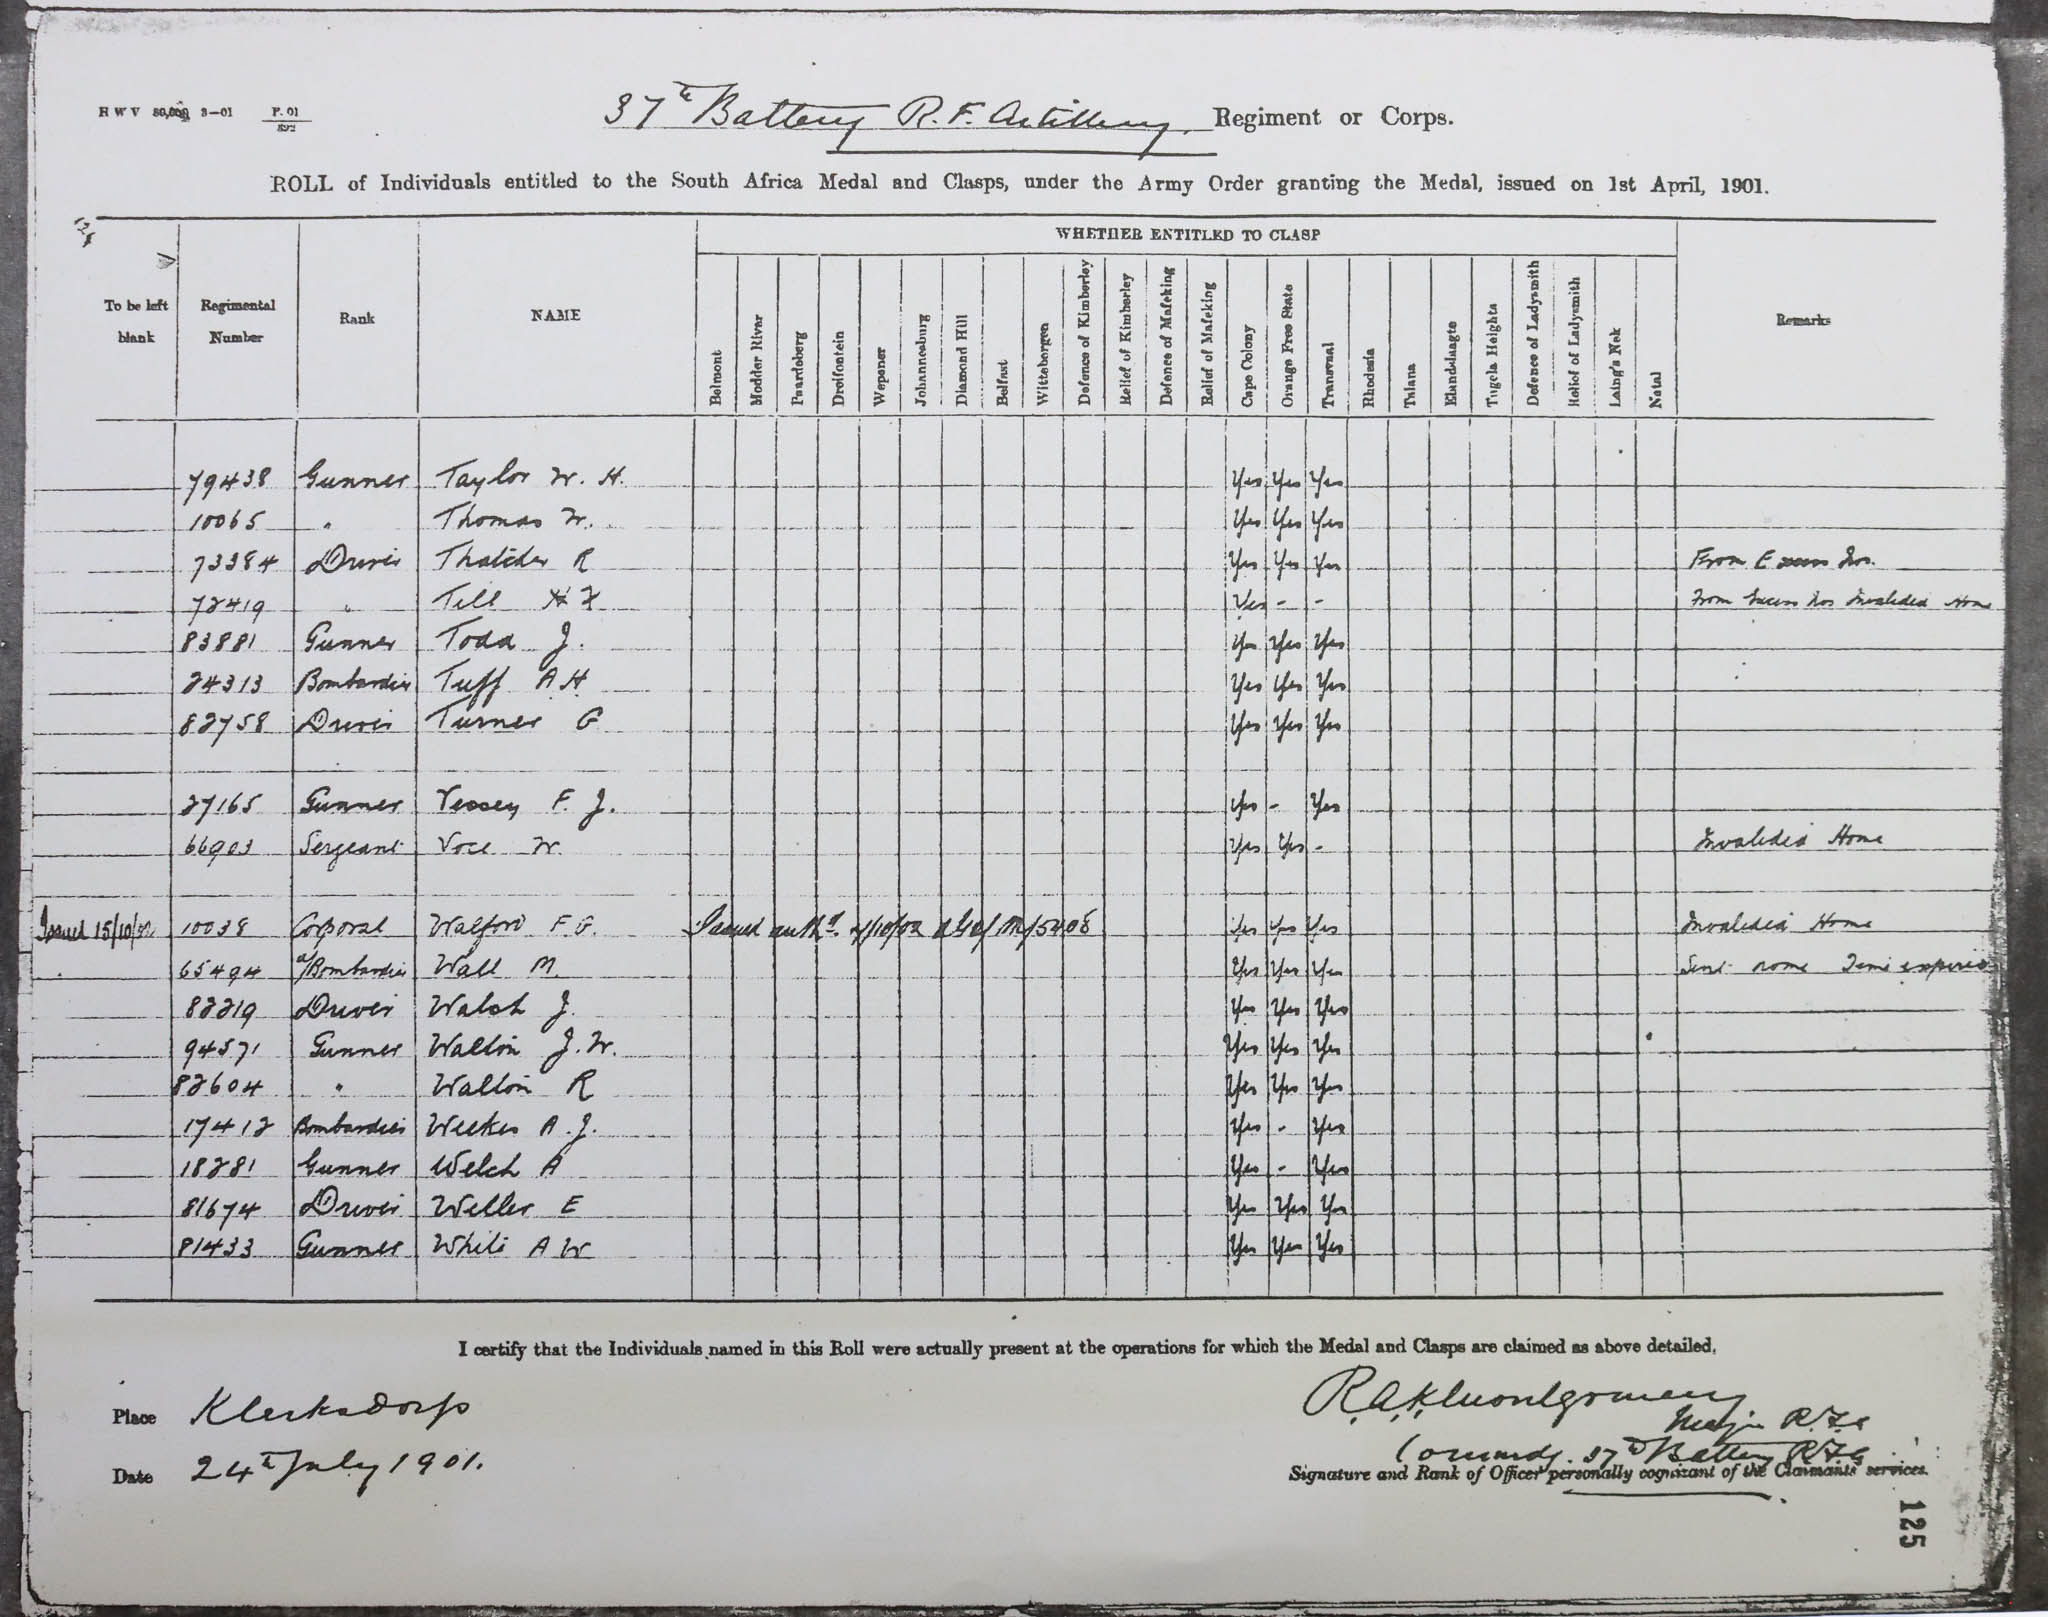 H W V 50,000 3—01 F. 01
892
37th Battery R. F. Artillery. Regiment or Corps.
ROLL of Individuals entitled to the South Africa Medal and Clasps, under the Army Order granting the Medal, issued on 1st April, 1901.
WHETHER ENTITLED TO CLASP
To be left blank
Regimental Number
Rank
NAME
Belmont
Modder River
Paardeberg
Dreifontein
Wepener
Johannesburg
Diamond Hill
Belfast
Wittebergen
Defence of Kimberley
Relief of Kimberley
Defence of Mafeking
Relief of Mafeking
Cape Colony
Orange Free State
Transvaal
Rhodesia
Talana
Elandslaagte
Tugela Heights
Defence of Ladysmith
Relief of Ladysmith
Laing's Nek
Natal
Remarks
79438 Gunner Taylor W. H. Yes Yes Yes
10065 " Thomas W. Yes Yes Yes
73384 Driver Thatcher R Yes Yes Yes From Excess Nos.
72419 " Till H F Yes - - From Excess Nos Invalided Home
83881 Gunner Todd J. Yes Yes Yes
24313 Bombardier Tuff A H Yes Yes Yes
82758 Driver Turner G Yes Yes Yes
27165 Gunner Vessey F. J. Yes - Yes
66903 Sergeant Voce W. Yes Yes - Invalided Home
Issued 15/10/02 10038 Corporal Walford F. G. Issued auth. 4/10/02 68/M/5408 Yes Yes Yes Invalided Home
65494 a/Bombardier Wall M. Yes Yes Yes Sent home Time expired
82219 Driver Walsh J. Yes Yes Yes
94571 Gunner Walton J. W. Yes Yes Yes
82604 " Walton R Yes Yes Yes
17412 Bombardier Weekes A. J. Yes - Yes
18281 Gunner Welch A Yes - Yes
81674 Driver Weller E Yes Yes Yes
81433 Gunner White A W Yes Yes Yes
I certify that the Individuals named in this Roll were actually present at the operations for which the Medal and Clasps are claimed as above detailed.
Place Klerksdorp
R.A.K. Montgomery
Major R.F.A
Date 24th July 1901.
Commdg. 37th Battery R.F.A
Signature and Rank of Officer personally cognizant of the Claimants' services.
125